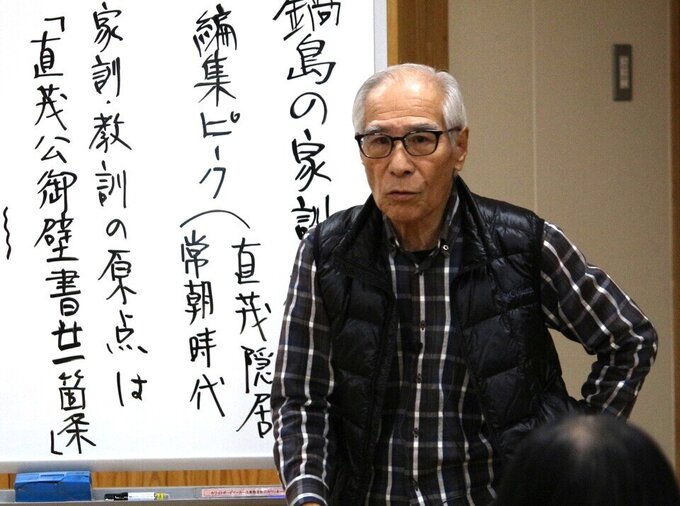 鍋島の家訓
編集ピーク(直茂隠居
常朝時代
家訓・教訓の原点は
「直茂公御壁書廿一箇条」